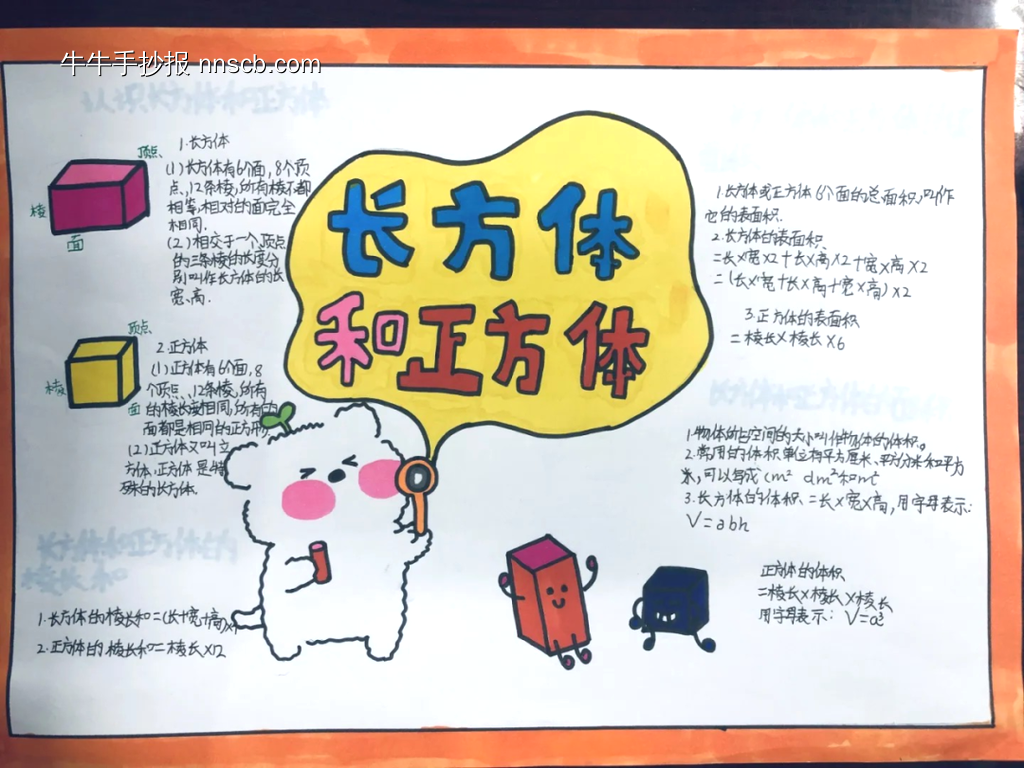 牛牛手抄报 nnscb.com
认识长方体和正方体
顶点、
棱
面
1.长方体
(1)长方体有6个面,8个顶
点、12条棱,所有棱不都
相等,相对的面完全
相同.
(2)相交于一个顶点
的三条棱的长度分
别叫作长方体的长
宽、高.
顶点、
棱
面
2.正方体
(1)正方体有6个面,8
个顶点、12条棱,所有
的棱长度相同,所有的
面都是相同的正方形
(2)正方体又叫立
方体.正方体是特
殊的长方体.
长方体和正方体的
棱长和
1.长方体的棱长和=(长+宽+高)×4
2.正方体的棱长和=棱长×12
长方体
和正方体
1.长方体或正方体6个面的总面积,叫作
它的表面积.
2.长方体的表面积
=长×宽×2+长×高×2+宽×高×2
=(长×宽+长×高+宽×高)×2
3.正方体的表面积
=棱长×棱长×6
长方体和正方体的
1.物体所占空间的大小叫作物体的体积。
2.常用的体积单位有平方厘米、平方分米和平方
米,可以写成cm² dm²和m²
3.长方体的体积=长×宽×高,用字母表示:
V=abh
正方体的体积
=棱长×棱长×棱长
用字母表示:V=a³